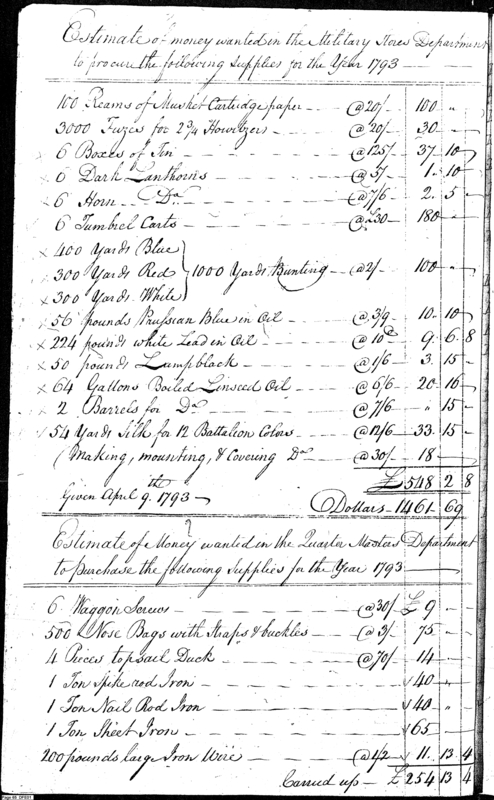 Estimate of money wanted in the Military Stores Department
to procure the following Supplies for the Year 1793
100 Reams of Musket Cartridge paper @ 20/ 100 "
3000 Fuzes for 2 3/4 Howitzers @ 20/ 30
x 6 Boxes of Tin @ 125/ 37 10
x 6 Dark Lanthorns @ 5/ 1 10
x 6 Horn Do @ 7/6 2 5
6 Tumbrel Carts @ £30 180
x 400 Yards Blue
x 300 Yards Red } 1000 Yards Bunting @ 2/ 100
x 300 Yards White
x 56 pounds Prussian Blue in Oil @ 3/9 10 10
x 224 pounds white Lead in Oil @ 10d 9 6 8
x 50 pounds Lampblack @ 1/6 3 15
x 64 Gallons Boiled Linseed Oil @ 6/6 20 16
x 2 Barrels for Do @ 7/6 " 15
54 Yards Silk for 12 Battalion Colors @ 12/6 33 15
Making, mounting, & Covering Do @ 30/ 18
£ 548 2 8
Given April 9th 1793
Dollars 1461 69
Estimate of Money wanted in the Quarter Masters Department
to purchase the following Supplies for the Year 1793
6 Waggon Screws @ 30/ £ 9
500 Nose Bags with Straps & buckles @ 3/ 75
4 Pieces topsail Duck @ 70/ 14
1 Ton Spike rod Iron 40 "
1 Ton Nail Rod Iron 40 "
1 Ton Sheet Iron 65
200 pounds large Iron Wire @ 1/2 11 13 4
Carried up £ 254 13 4